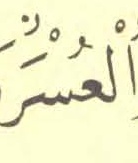 الْعُسْرَ